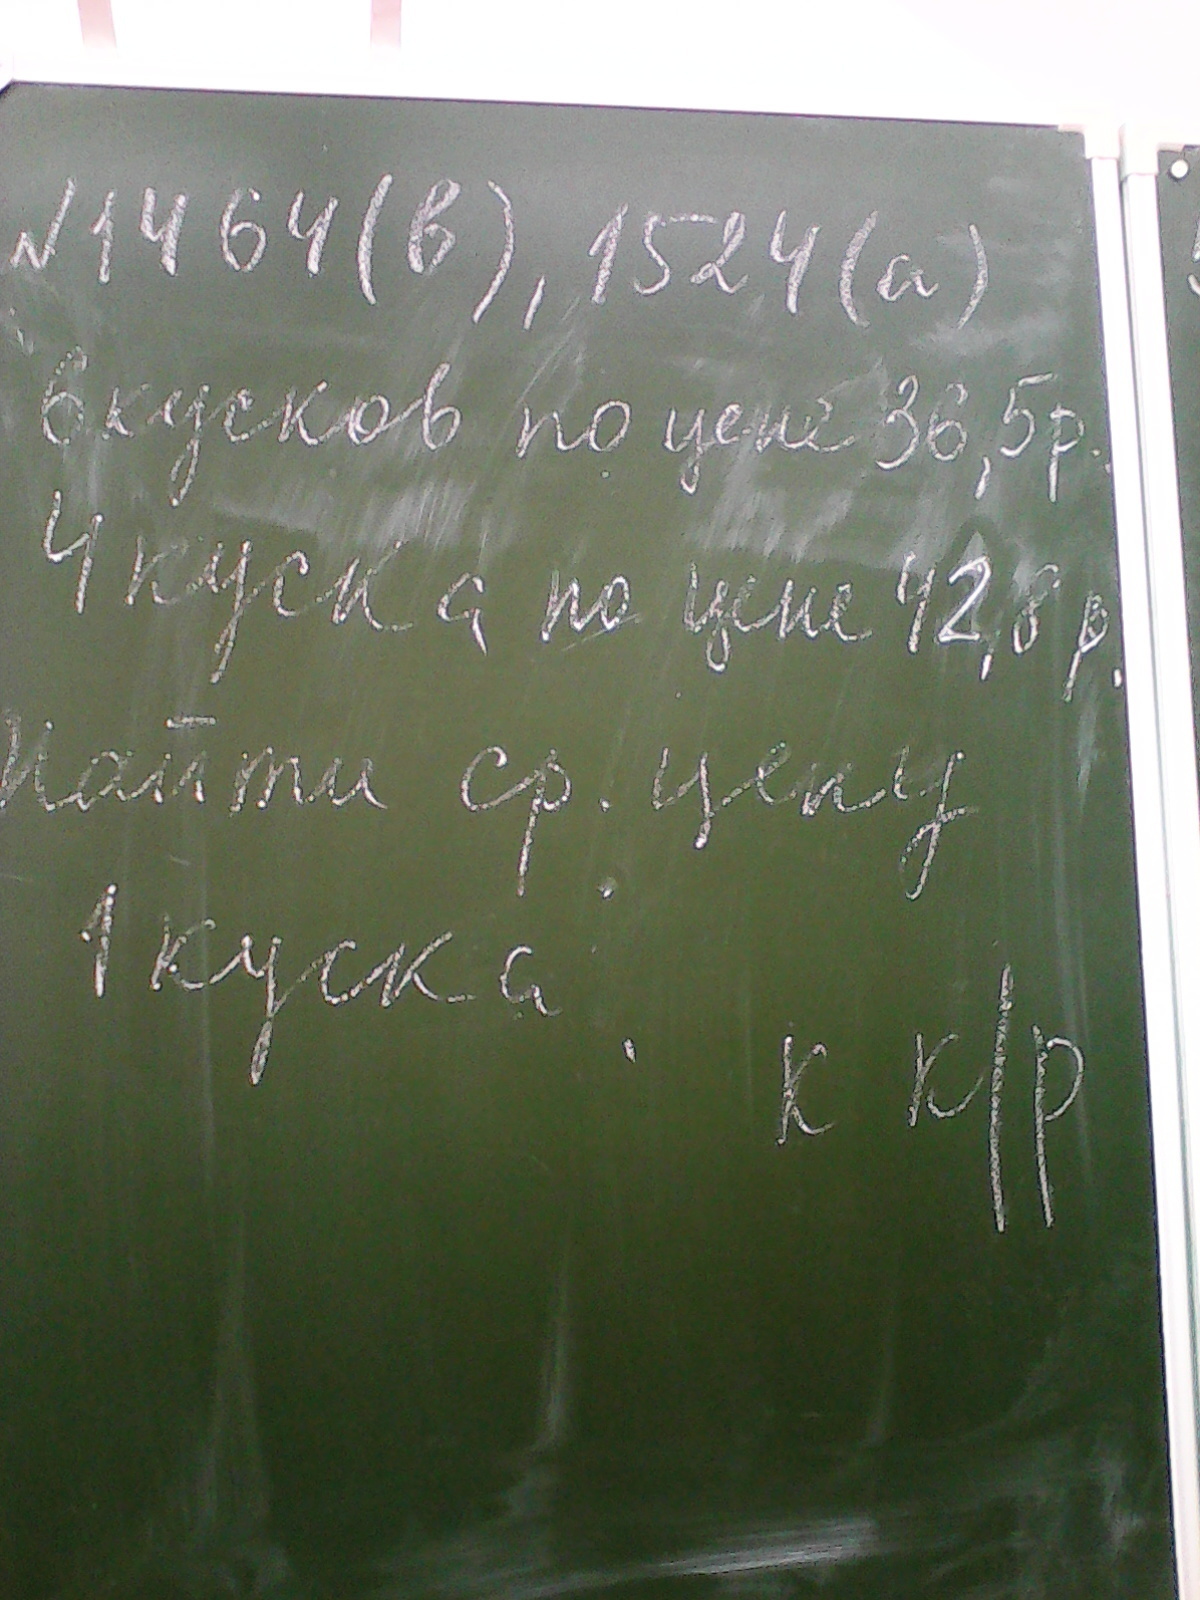 №1464(в), 1524(а)
6 кусков по цене 36,5р.
4 куска по цене 42,8р.
Найти ср. цену
1 куска.
к к/р